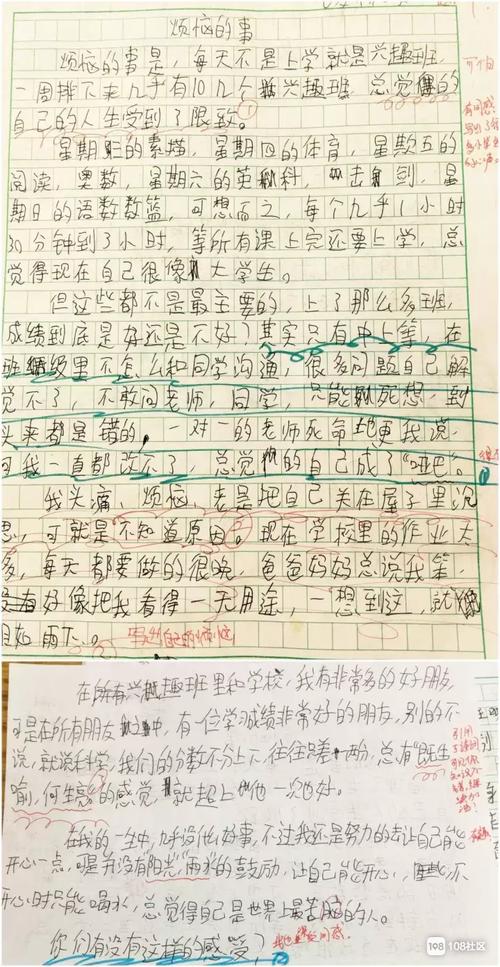 烦恼的事
烦恼的事是,每天不是上学就是兴趣班,
一周排下来几乎有10几个兴趣班,总觉得的
自己的人生受到了限致。①
星期 的素描,星期四的体育,星期五的
阅读,奥数,星期六的英 科, 击 剑,星
期日的语数数篮,可想而之,每个几乎1小时
30分钟到3小时,等所有课上完还要上学,总
觉得现在自己很像 大学生。
但这些都不是最主要的,上了那么多班,
成绩到底是好还是不好?其实只有中上等,在
班级里不怎么和同学沟通,很多问题自己解
觉不了,不敢问老师,同学,只能 死想,到
头来都是错的,一对一的老师死命地更我说,
可我一直都改不了,总觉 的自己成了“哑巴”。
我头痛,烦恼,老是把自己关在屋子里沉
思,可就是不知道原因。现在学校里的作业太
多,每天都要做的很晚,爸爸妈妈总说我笨,
好像把我看得一无用途,一想到这,就
目如雨下。 写出自己的烦恼
在所有兴趣班里和学校,我有非常多的好朋友,
可是在所有朋友之中,有一位学习成绩非常好的朋友,别的不
说,就说科学,我们的分数不分上下,往往 差一两分,总有“既生
喻,何生亮”的感觉,就超上他一次也好。
在我的一生中,几乎没什么好事,不过我还是努力的去让自己能
开心一点,可是并没有阳光,雨水的鼓励,让自己能开心, 不
开心时只能喝水,总觉得自己是世界上最苦脑的人。
你们有没有这样的感受?
108社区